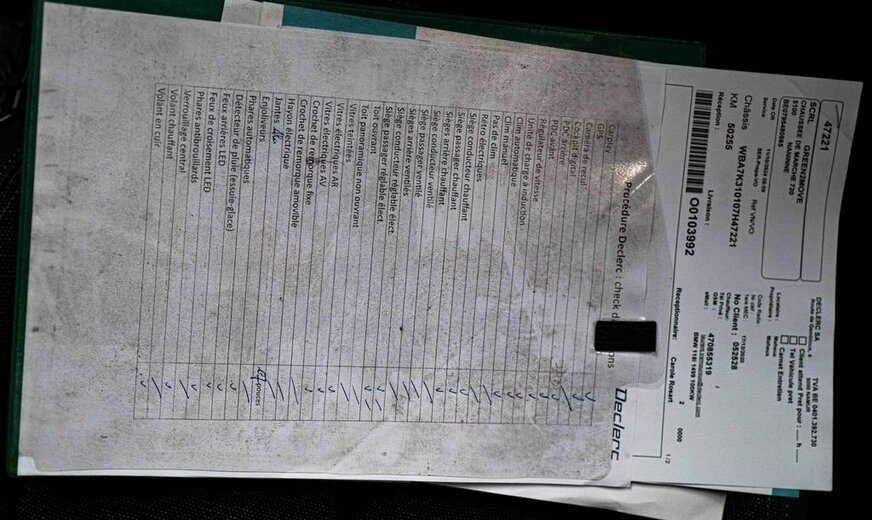 47221
SCRL GREEN2MOVE
CHAUSSEE DE MARCHE 720
5100 NANINNE
DECLERC SA
TVA BE 0401.392.730
5000 NAMUR
Client attend
Pret pour :
Tel Véhicule pret
Carnet Entretien
Date OR
Service
Locataire :
Propriétaire :
Châssis WBA7K310107H47221 Ref VN/VO
KM 50255
No Client : 052528
Réception :
Livraison :
O0103992
470855319
BMW 118i 1499 100KW
Receptionnaire: Carole Rosart
1/2
Declerc
Procédure Declerc : check
Carplay
GPS
Caméra de recul
Cockpit digital
PDC arrière
PDC avant
Régulateur de vitesse
Unité de charge à induction
Clim automatique
Clim manuel
Pas de clim
Rétro électriques
Siège passager chauffant
Siège conducteur chauffant
Sièges arrière chauffant
Siège conducteur ventilé
Siège passager ventilé
Sièges arrière ventilés
Siège conducteur réglable élect
Siège passager réglable élect
Toit ouvrant
Toit panoramique non ouvrant
Vitres teintées
Vitres électriques AR
Vitres électriques AV
Crochet de remorque fixe
Crochet de remorque amovible
Hayon électrique
Jantes Alu pouces
Enjoliveurs
Phares automatiques
Détecteur de pluie (essuie-glace)
Feux arrières LED
Feux de croisement LED
Phares antibrouillards
Verrouillage central
Volant chauffant
Volant en cuir